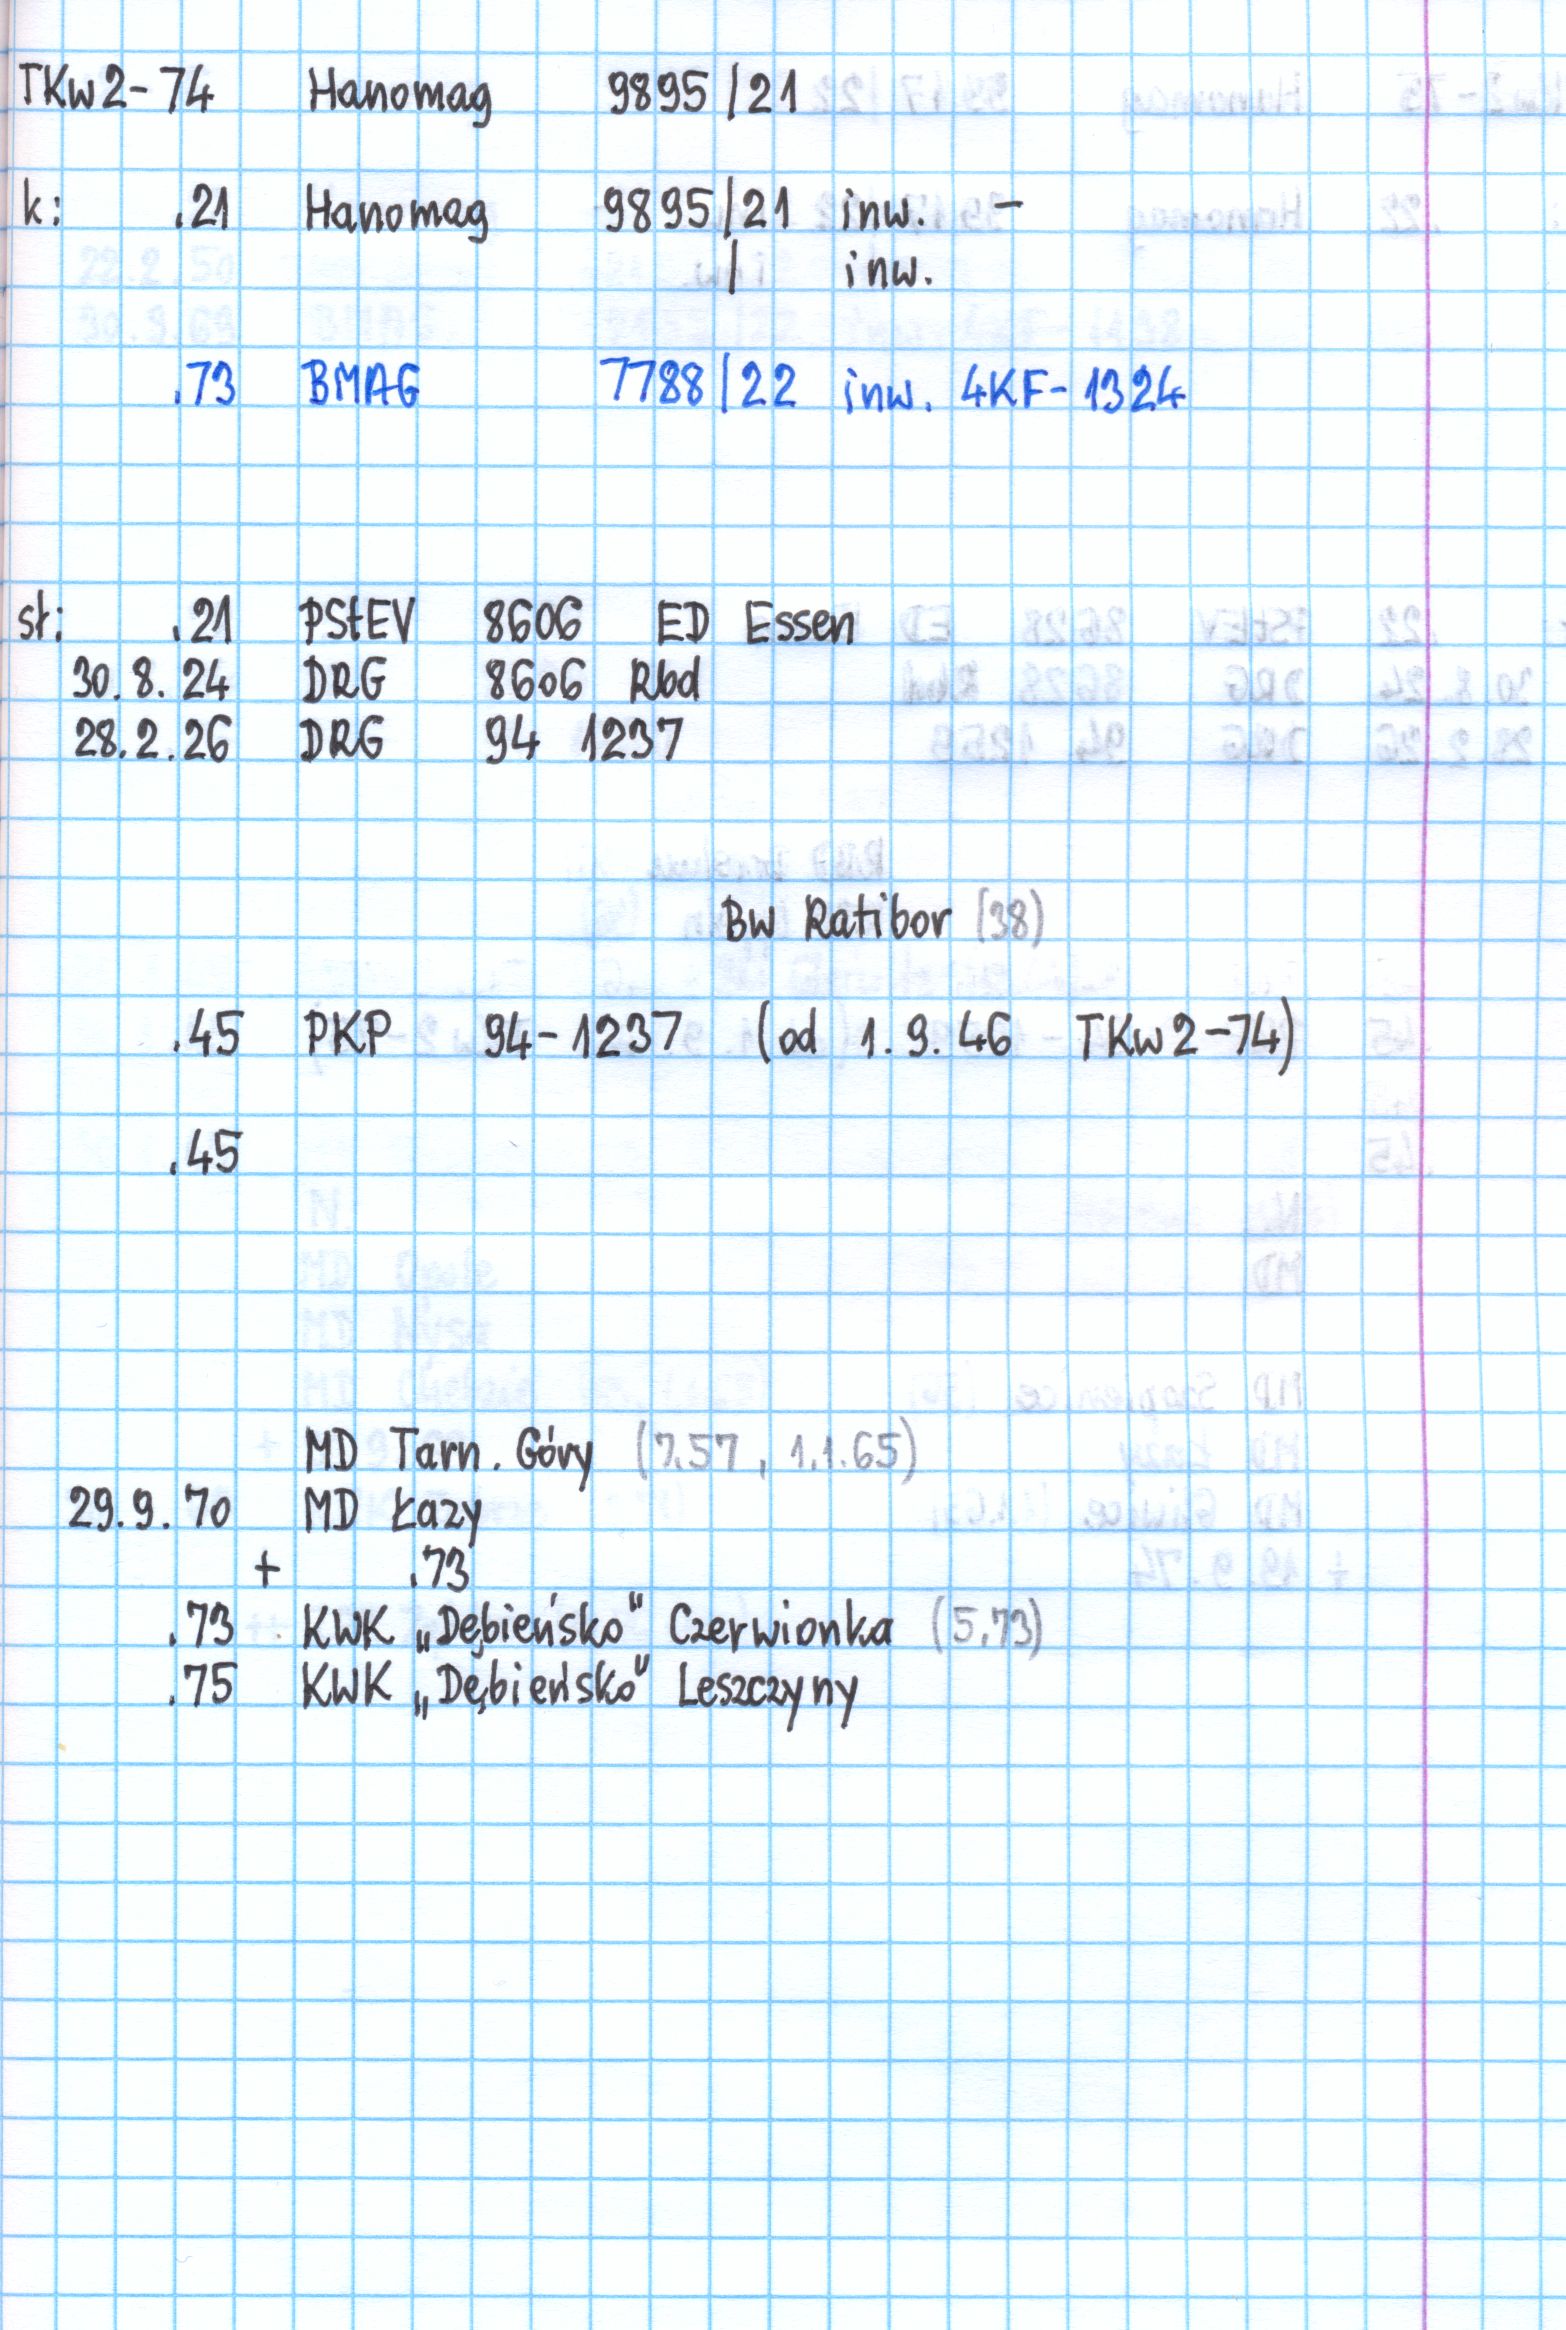 TKw2-74 Hanomag 9895/21
k: .21 Hanomag 9895/21 inw. -
/ inw.
.73 BMAG 7788/22 inw. 4KF-1324
st: .21 PStEV 8606 ED Essen
30.8.24 DRG 8606 Rbd
28.2.26 DRG 94 1237
Bw Ratibor (38)
.45 PKP 94-1237 (od 1.9.46 TKw2-74)
.45
MD Tarn. Góry (7.57, 1.1.65)
29.9.70 MD Łazy
+ .73
.73 KWK „Dębieńsko" Czerwionka (5.73)
.75 KWK „Dębieńsko" Leszczyny